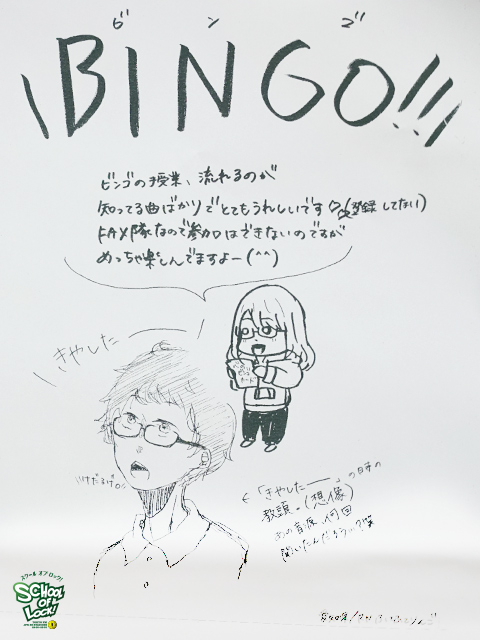 ビンゴ
\BINGO!!!/
ビンゴの授業、流れるのが
知ってる曲ばかりでとてもうれしいです♡(登録してない)
FAX隊なので参加はできないのですが
めっちゃ楽しんでますよー(^^)
きやした
いけだるげ。
←「きやしたー」の日の
教頭ー(想像)
あの音源、何回
聞いたんだろう…?笑
スクール オブ ロック!
SCHOOL
OF
LOCK!